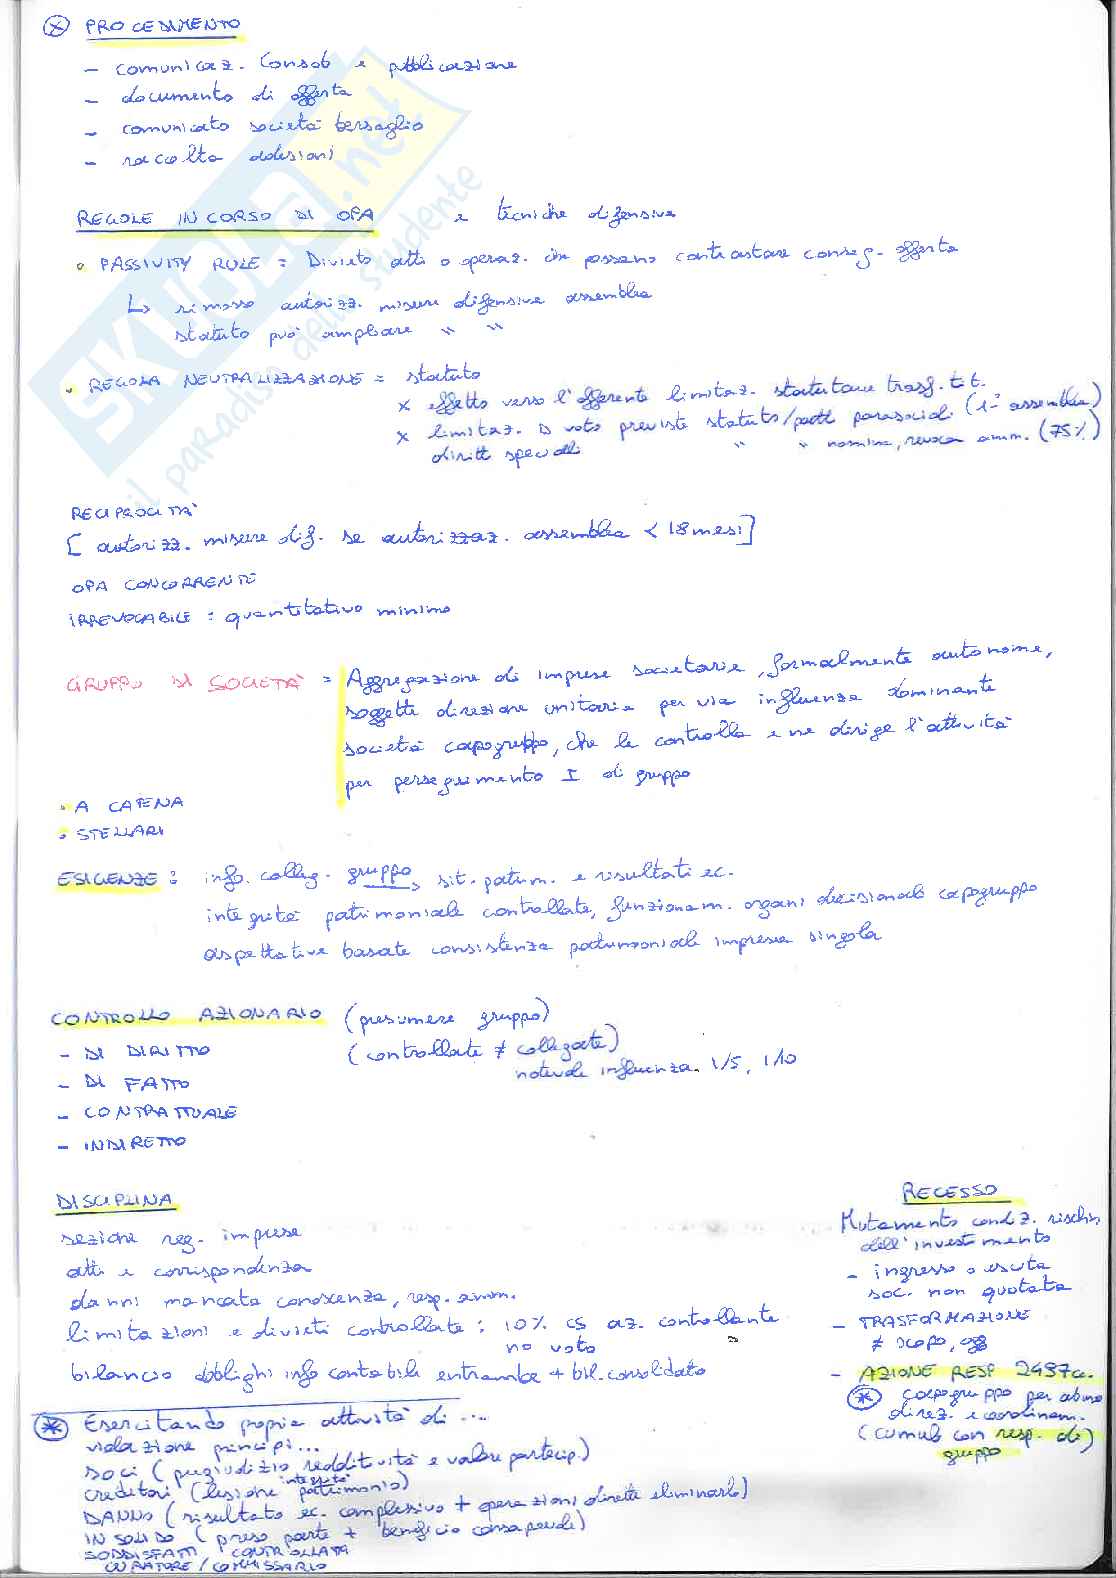 PROCEDIMENTO
- comunicaz. Consob e pubblicazione
- documento di offerta
- comunicato società bersaglio
- raccolta adesioni
REGOLE IN CORSO DI OPA e tecniche difensive
• PASSIVITY RULE = Divieto atti o operaz. che possano contrastare conseg. offerta
↳ rimosso autorizz. misure difensive assemblea
statuto può ampliare " "
• REGOLA NEUTRALIZZAZIONE = statuto
x effetto verso l'offerente limitaz. statutarie trasf. tit.
x limitaz. D voto previste statuto/patti parasociali (1ª assemblea)
diritti speciali " " nomina, revoca amm. (75%)
RECIPROCITÀ
[autorizz. misure dif. se autorizzaz. assemblea < 18 mesi]
OPA CONCORRENTE
IRREVOCABILE = quantitativo minimo
GRUPPO DI SOCIETÀ = Aggregazione di imprese societarie, formalmente autonome,
soggette direzione unitaria per via influenza dominante
società capogruppo, che le controlla e ne dirige l'attività
per perseguimento I di gruppo
• A CATENA
• STELLARI
ESIGENZE : info. colleg. gruppo, sit. patrim. e risultati ec.
integrità patrimoniale controllate, funzionam. organi decisionali capogruppo
aspettative basate consistenza patrimoniale impresa singola
CONTROLLO AZIONARIO (presumere gruppo)
- DI DIRITTO (controllate ≠ collegate)
notevole influenza. 1/5, 1/10
- DI FATTO
- CONTRATTUALE
- INDIRETTO
DISCIPLINA
sezione reg. imprese
atti e corrispondenza
danni mancata conoscenza, resp. amm.
limitazioni e divieti controllate : 10% CS az. controllante
no voto
bilancio obblighi info contabili entrambe + bil. consolidato
RECESSO
Mutamento condiz. rischio
dell'investimento
- ingresso o uscita
soc. non quotata
- TRASFORMAZIONE
≠ scopo, ogg
- AZIONE RESP 2497 cc.
* capogruppo per abuso
direz. e coordinam.
(cumulo con resp. di)
gruppo
* Esercitando propria attività di ...
violazione principi...
soci (pregiudizio redditività e valore partecip.)
creditori (lesione integrità patrimonio)
DANNO (risultato ec. complessivo + operazioni dirette eliminarlo)
IN SOLIDO (preso parte + beneficio consapevole)
SODDISFATTI CONTROLLATA
CURATORE / COMMISSARIO
SKUOLA.net
il paradiso dello studente